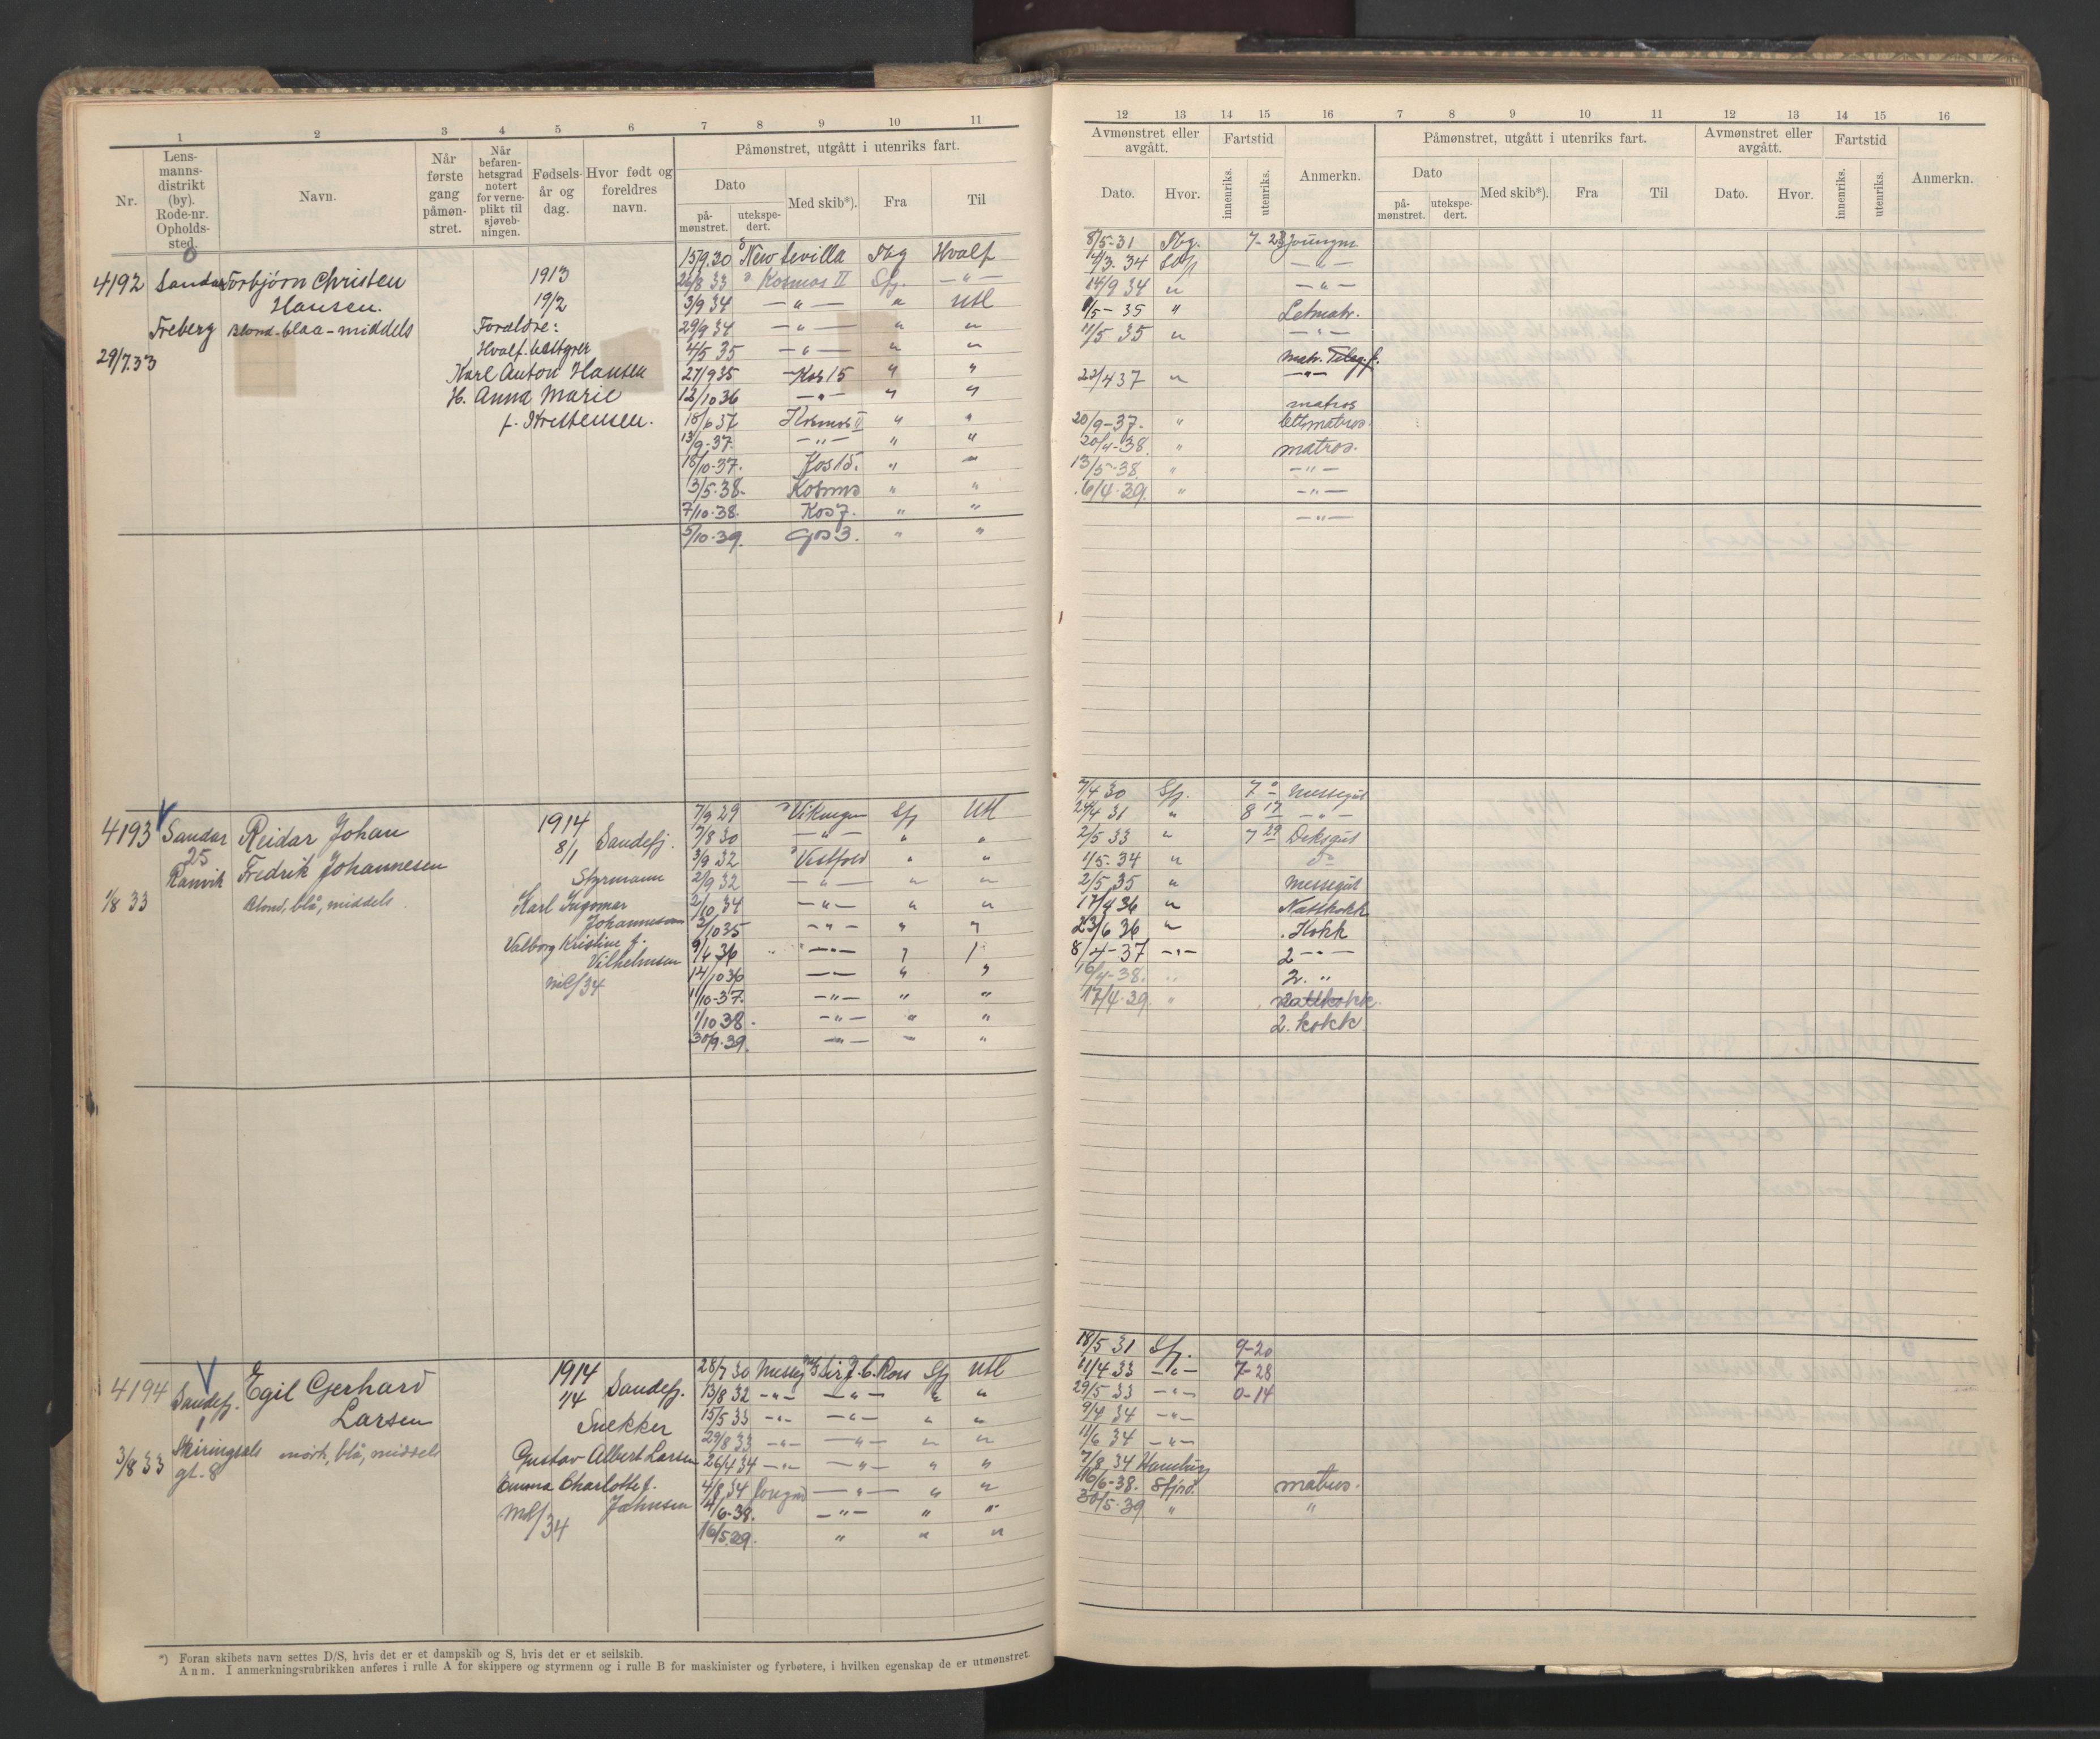 1 2 3 4 5 6 7 8 9 10 11
Nr.
Lens-
manns-
distrikt
(by).
Rode-nr.
Opholds-
sted.
Navn.
Når
første
gang
påmøn-
stret.
Når
befaren-
hetsgrad
notert
for verne-
plikt til
sjøveb-
ningen.
Fødsels-
år og
dag.
Hvor født og
foreldres
navn.
Påmønstret, utgått i utenriks fart.
Dato
på-
mønstret.
utekspe-
dert.
Med skib*).
Fra
Til
4192 Sandar Torbjörn Christen 1913
Hansen. 19/2
Freberg Blond-blaa-middels Forældre:
29/7.33 Hvalf. bestyrer
Karl Anton Hansen
H. Anna Marie
f. Kristensen.
15/9.30 New Sevilla Tbg Hvalf
26/8 33 Kosmos II Sfj. -"-
3/9 34 -"- " Utl
29/9 34 -"- " "
4/5 35 -"- " "
27/9 35 Kos 15 " "
12/10 36 -"- " "
18/6 37 Kosmos II " "
13/9-37. -"- " "
18/10-37. Kos 15. " "
3/5-38. Kosmos " "
7/10-38. Kos 7. " "
5/10-39. Gos 3. " "
4193 Sandar Reidar Johan 1914
25 8/1 Sandefj.
Ranvik Fredrik Johannesen Styrmann
1/8 33 Blond, blå, middels. Karl Ingomar
Johannesen
Valborg Kristine f.
Vilhelmsen
mil/34
7/9 29 Vikingen Sfj Utl
7/8 30 -"- " "
3/9 32 Vestfold " "
2/9 32 -"- " "
2/10 34 -"- " "
2/10 35 -"- " "
9/6 36 -"-
14/10 36 -"- " "
11/10-37. -"- " "
1/10 38. -"- " "
30/9-39. -"- "
4194 Sandefj. Egil Gerhard 1914
1 Larsen 1/4 Sandefj.
Snekker
3/8 33 Skiringsals mörk, blå, middels Gustav Albert Larsen
gt. 8 Emma Charlotte f.
Jahnsen
mil/34
28/7 30 Messeg Sir J. C. Ross Sfj Utl
13/8 32 -"- -"- " "
15/5 33 -"- -"- " "
29/8 33 -"- -"- " "
26/4 34 -"- -"- " "
4/8 34 -"- " "
14/6-38. -"- " "
16/5 39. " " "
*) Foran skibets navn settes D/S, hvis det er et dampskib og S, hvis det er et seilskib.
Anm. I anmerkningsrubrikken anføres i rulle A for skippere og styrmenn og i rulle B for maskinister og fyrbøtere, i hvilken egenskap de er utmønstret.
12 13 14 15 16 7 8 9 10 11 12 13 14 15 16
Avmønstret eller
avgått.
Dato. Hvor.
Fartstid
innenriks. utenriks.
Anmerkn.
Påmønstret, utgått i utenriks fart.
Dato
på-
mønstret.
utekspe-
dert.
Med skib*). Fra Til
Avmønstret eller
avgått.
Dato. Hvor.
Fartstid
innenriks. utenriks.
Anmerkn.
8/5-31 Tbg. 7-23 Joungm
-"-
14/9 34 " -"-
35 " Letmatr.
11/5 35 " -"-
matr.
22/4 37 " -"-
matros
20/9-37. " lettmatros.
20/4-38. " matros.
13/5-38. " -"-
6/4-39. " -"-
-"-
7/4 30 Sfj. 7 Messegut
24/4 31 " 8 17 -"-
2/5 33 " 7 29 Deksgut
1/5-34 "
2/5 35 " Messegut
17/4 36 " Nattkokk
23/6 36 " . Kokk
8/4-37 -"- 2 -"-
16/4-38. " 2. "
17/4-39. " nattkokk.
2. kokk
18/5 31 Sfj. 9-20
11/4 33 -"- 7-28
29/5 33 -"- 0-14
9/4 34 -"-
11/6 34 -"-
7/8 34 Hamburg
16/6-38. Sfjord. matros.
30/5-39 " "